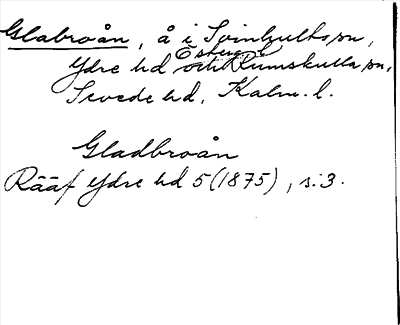 Glabroån, å i Svinhults sn,
Ydre hd Österg. l. och Rumskulla sn,
Sevede hd, Kalm. l.
Gladbroån
Rääf Ydre hd 5 (1875), s. 3.